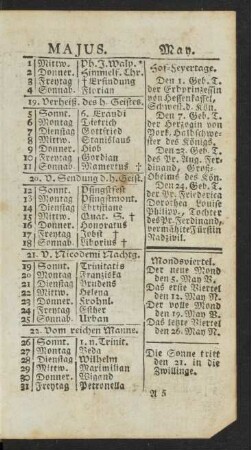 MAJUS. May.
1 Mittw. Ph. J. Walp. *
2 Donner. Himmelf. Chr.
3 Freytag † Erfindung
4 Sonnab. Florian
19. Verheiß. des h. Geistes.
5 Sonnt. 6. Exaudi
6 Montag Dietrich
7 Dienstag Gottfried
8 Mittw. Stanislaus
9 Donner. Hiob
10 Freytag Gordian
11 Sonnab. Mamertus †
20. V. Sendung d. h. Geist.
12 Sonnt. Pfingstfest
13 Montag Pfingstmont.
14 Dienstag Christiane
15 Mittw. Quat. S. †
16 Donner. Honoratus
17 Freytag Jobst †
18 Sonnab. Liborius †
21. V. Nicodemi Nachtg.
19 Sonnt. Trinitatis
20 Montag Franziska
21 Dienstag Prudens
22 Mittw. Helena
23 Donner. Frohnl.
24 Freytag Esther
25 Sonnab. Urban
22. Vom reichen Manne.
26 Sonnt. 1. n. Trinit.
27 Montag Beda
28 Dienstag Wilhelm
29 Mittw. Maximilian
30 Donner. Wigand
31 Freytag Petronella
Hof-Feyertage.
Den 1. Geb. T.
der Erbprinzessin
von Hessenkassel,
Schwest. d. Kön.
Den 7. Geb. T.
der Herzogin von
York, Halbschwe-
ster des Königs.
Den 23. Geb. T.
des Pr. Aug. Fer-
dinand, Groß-
Oheims des Kön.
Den 24. Geb. T.
der Pr. Friederica
Dorothea Louise
Philipp., Tochter
des Pr. Ferdinand,
vermählte Fürstin
Radzivil.
Mondsviertel.
Der neue Mond
den 5. May V.
Das erste Viertel
den 12. May N.
Der volle Mond
den 19. May V.
Das letzte Viertel
den 26. May N.
Die Sonne tritt
den 21. in die
Zwillinge.
A 5